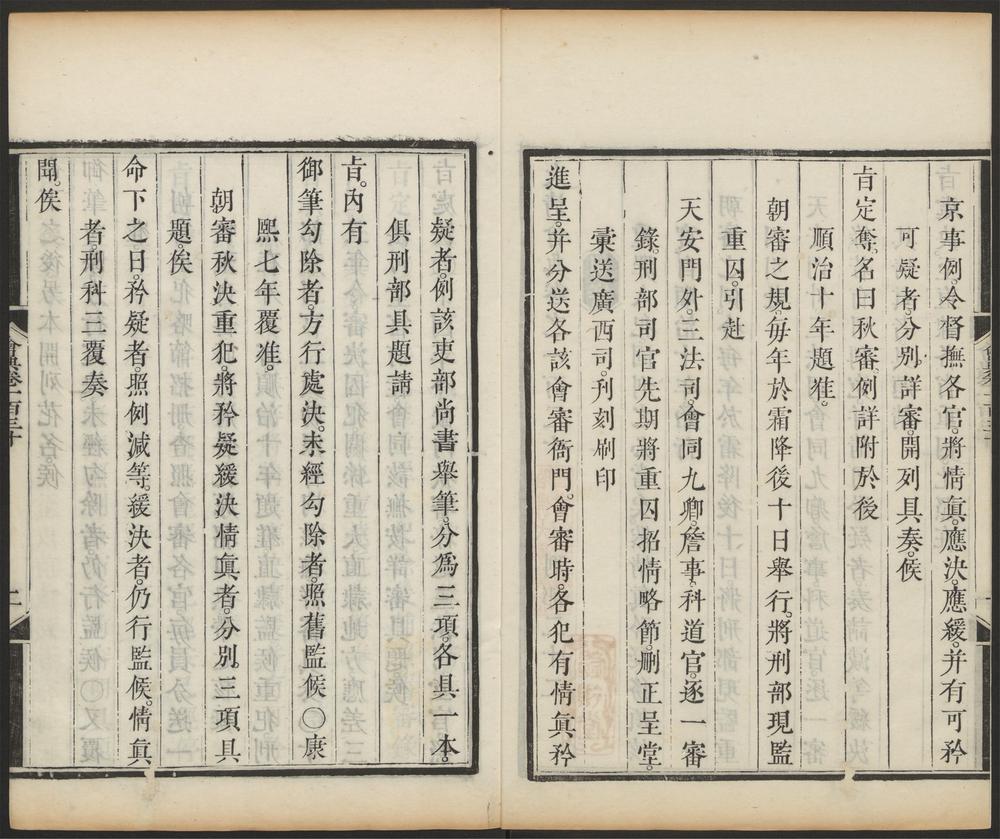 京事例。令督撫各官。將情眞。應決。應緩。并有可矜
可疑者。分別。詳審。開列具奏。候
旨定奪。名曰秋審。例詳附於後
順治十年題准。
朝審之規。每年於霜降後十日舉行。將刑部現監
重囚。引赴
天安門外。三法司。會同九卿。詹事。科道官。逐一審
錄。刑部司官先期將重囚招情略節。刪正呈堂。
彙送廣西司。刋刻刷印
進呈。并分送各該會審衙門。會審時。各犯有情眞矜
疑者。例該吏部尚書舉筆。分爲三項。各具一本。
俱刑部具題請
旨。內有
御筆勾除者。方行處決。未經勾除者。照舊監候〇康
熙七年覆准。
朝審秋決重犯。將矜疑緩決情眞者。分別。三項具
題。俟
命下之日。矜疑者。照例減等。緩決者。仍行監候。情眞
者。刑科三覆奏
聞。俟
會典卷一百三十
二